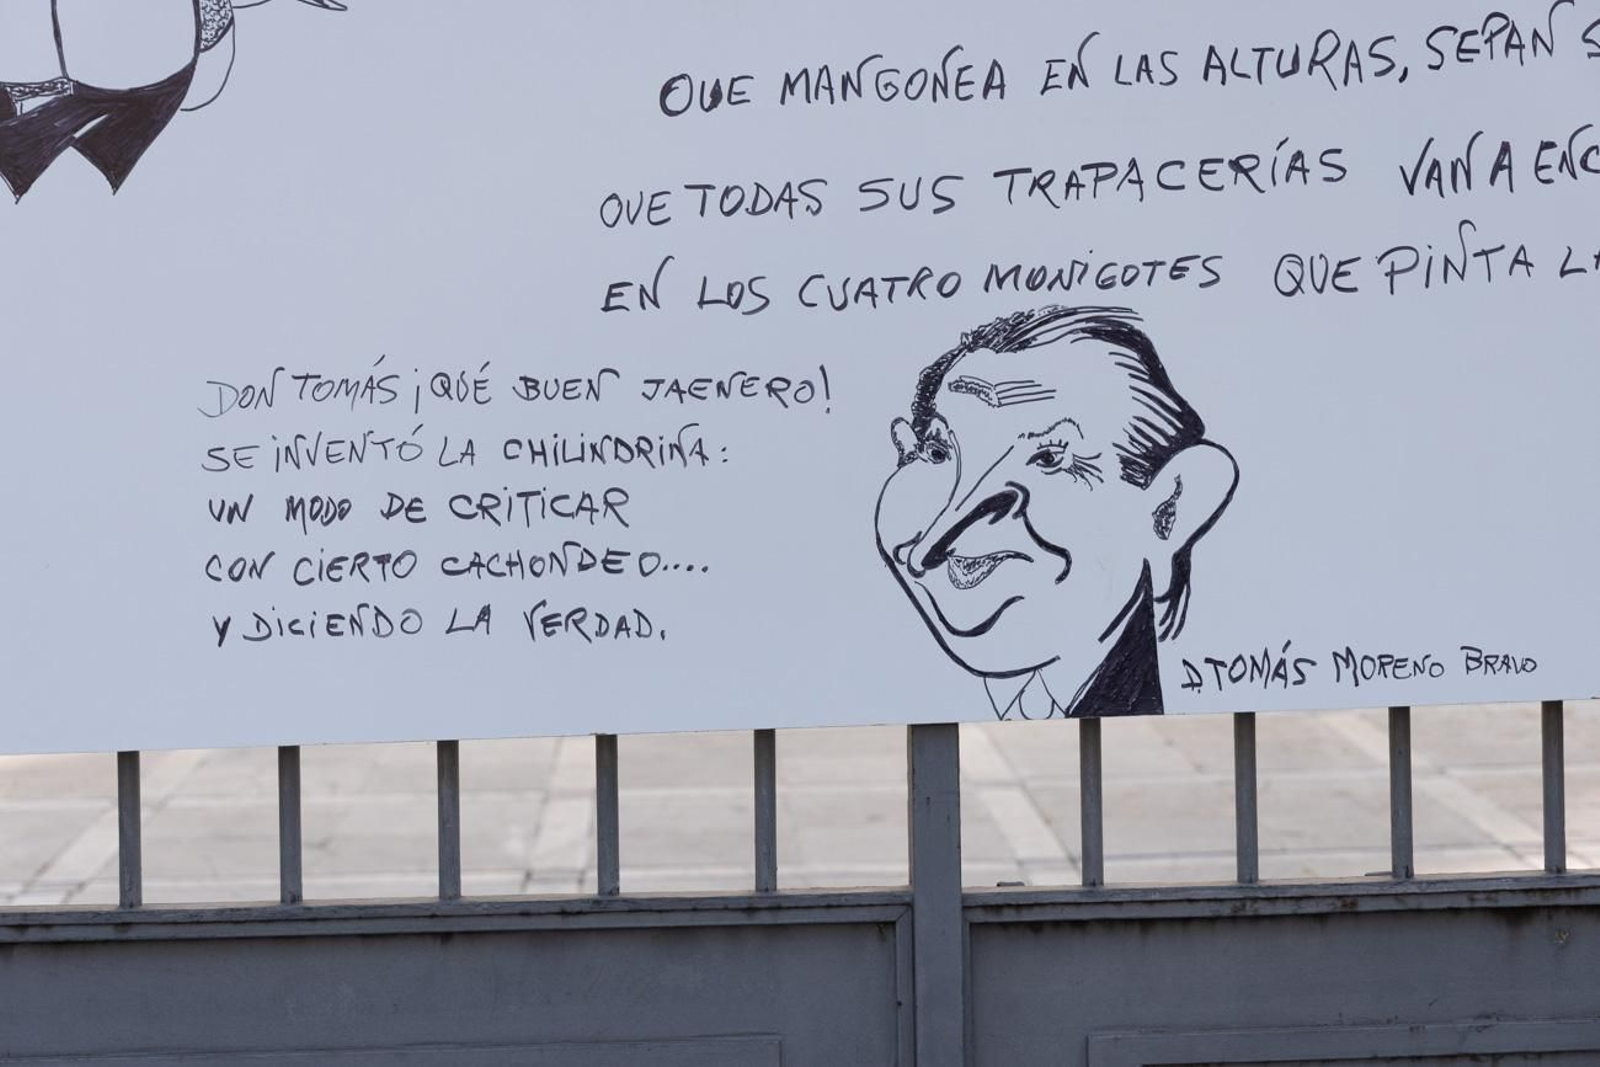 QUE MANGONEA EN LAS ALTURAS, SEPAN
QUE TODAS SUS TRAPACERÍAS VAN A
EN LOS CUATRO MONIGOTES QUE PINTA
DON TOMÁS ¡QUÉ BUEN JAENERO!
SE INVENTÓ LA CHILINDRINA:
UN MODO DE CRITICAR
CON CIERTO CACHONDEO....
Y DICIENDO LA VERDAD.
D. TOMÁS MORENO BRAVO